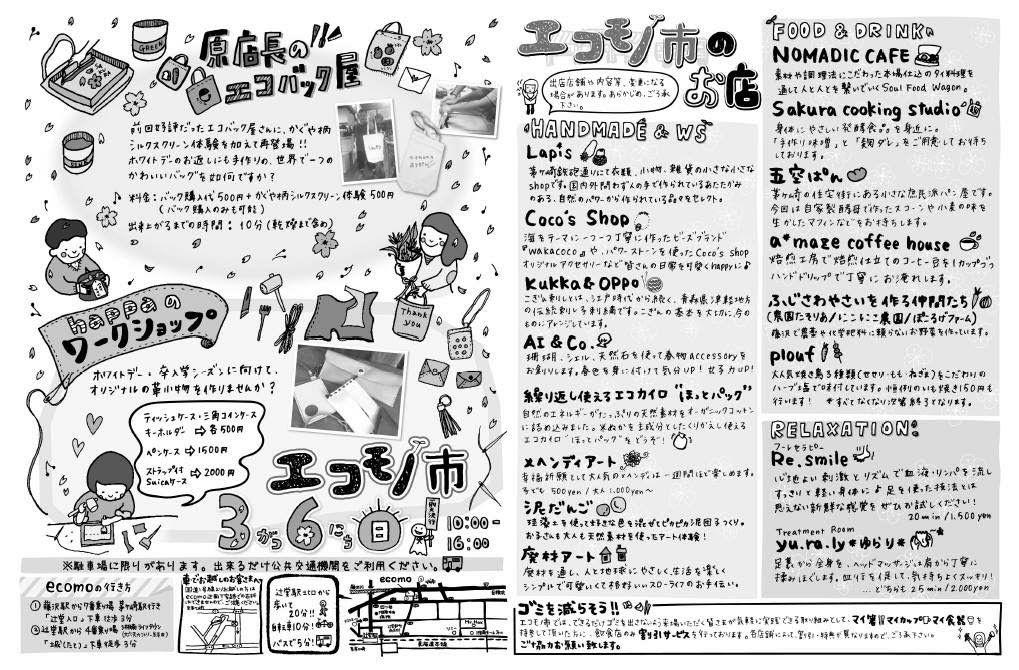 原店長の
エコバック屋
GREEN
前回好評だったエコバック屋さんに、かぐや柄
シルクスクリーン体験を加えて再登場!!
ホワイトデーのお返しにも手作りの、世界で一つの
かわいいバッグを如何ですか?
料金:バック購入代500円+かぐや柄シルクスクリーン体験500円
(バック購入のみも可能)
出来上がるまでの時間:10分(乾燥まで含め)
Thank
you
happaの
ワークショップ
ホワイトデー・卒入学シーズンに向けて、
オリジナルの革小物を作りませんか?
ティッシュケース・三角コインケース
キーホルダー ⇨ 各500円
ペンケース ⇨ 1500円
ストラップ付
Suicaケース ⇨ 2000円
エコモノ市
3がつ6にち日
雨天決行
10:00-
16:00
※駐車場に限りがあります。出来るだけ公共交通機関をご利用ください。
ecomoの行き方
①藤沢駅から7番乗り場 茅ヶ崎駅行き
「辻堂入口」下車 徒歩3分
②辻堂駅から4番乗り場
下車徒歩3分
車でお越しのお客さまへ
辻堂駅北口から
歩いて
20分!!
自転車10分!
バスで5分!
ecomo
Mr.Max
東海道本線
エコモノ市の
お店
出店店舗や内容等、変更になる
場合があります。あらかじめ、ご了承
下さい。
HANDMADE & WS
Lapis
茅ケ崎鉄砲通りにて衣類、小物、雑貨の小さな小さな
shopです。国内外問わず人の手で作られているあたたかみ
のある、自然のパワーから作られている品々をセレクト。
Coco's Shop
海をテーマに一つ一つ丁寧に作ったビーズブランド
『wakacoco』や、パワーストーンを使ったCoco's shop
オリジナルアクセサリーなど皆さんの日常を可愛くhappyに♪
Kukka & Oppo
こぎん刺しとは、江戸時代から続く、青森県津軽地方
の伝統刺し子刺繍です。こぎんの基本を大切に、今の
ものにアレンジしています。
AI & Co.
珊瑚、シェル、天然石を使って春物accessoryを
お創りします。春色を身に付けて気分UP!女子力UP!
繰り返し使えるエコカイロ"ほっとパック"
自然のエネルギーがたっぷりの天然素材をオーガニックコットン
に詰め込みました。米ぬかを主成分としたくりかえし使える
エコカイロ"ほっとパック"をどうぞ!
メヘンディアート
幸福祈願として大人気のメヘンディは一週間ほど楽しめます。
子ども 500yen / 大人 1,000yen〜
泥だんご
珪藻土を使って好きな色を混ぜてピカピカ泥団子づくり。
お子さまも大人も天然素材を使ったアート体験!
廃材アート
廃材を通し、人と地球にやさしく、生活を楽しく
シンプルで可愛いくて格好いいスローライフのお手伝い。
FOOD & DRINK
NOMADIC CAFE
素材や調理法にこだわった本場仕込のタイ料理を
通して人と人とを繋いでいくSoul Food Wagon。
Sakura cooking studio
身体にやさしい発酵食を身近に。
「手作り味噌」と「麹ダレ」をご用意してお待ち
しております。
五空ぱん
茅ヶ崎の住宅街にある小さな庶民派パン屋です。
今回は自家製酵母で作ったスコーンや小麦の味を
生かしたマフィンなどをお持ちします。
a*maze coffee house
焙煎工房で焙煎仕立てのコーヒー豆を1カップづつ
ハンドドリップで丁寧にお淹れします。
ふじさわやさいを作る仲間たち
(農園たそりあ/にこにこ農園/ぽるげファーム)
藤沢で農薬や化学肥料に頼らないお野菜を作っています。
plouf
大人気焼き鳥3種類(せせり・もも・ねぎま)をこだわりの
ハーブ塩で味付しています。恒例のいも焼き150円も
行います! *すべてなくなり次第終了となります。
RELAXATION
フーレセラピー
Re.smile
心地よい刺激とリズムで血液・リンパを流し
すっきりと軽い身体に♪足を使った技法とは
思えない新鮮な感覚をぜひお試しください!
20min/1,500yen
Treatment Room
yu.ra.ly*ゆらり*
足裏から全身を、ヘッドマッサージは肩から丁寧に
揉みほぐします。血行を促して、気持ちよくスッキリ!
…どちらも25min/2,000yen
ゴミを減らそう!!
エコモノ市では、できるだけゴミを出さないよう来場いただく皆さまが気軽に実践できる取り組みとして、マイ箸 マイカップ マイ食器を
持参して頂いた方に、飲食店のみ割引サービスを行っております。各店舗によって、割引・特典が異なりますので、ご了承下さい。
ご協力お願い致します。